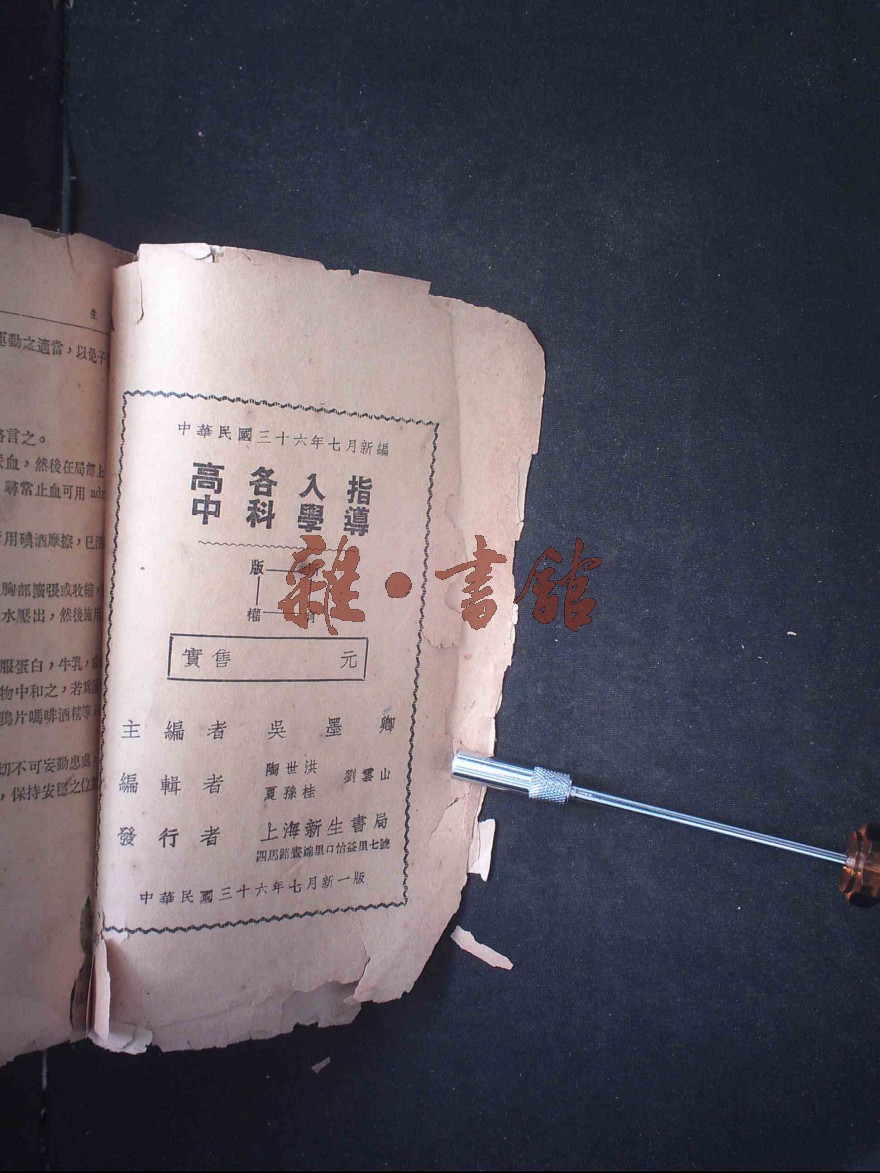 生
運動之適當，以免
言之。
血，然後在局部上
尋常止血可用 adr
用碘酒摩擦，已
胸部擴張或收縮，
水壓出，然後施用
服蛋白，牛乳，
物中和之，若爲
鴉片嗎啡酒精等，
切不可妄動患處，
，保持安穩之位
中華民國三十六年七月新編
高中各科入學指導
版 所
權 有
實售 元
主編者 吳墨卿
編輯者 陶世洪 劉雲山
夏孫桂
發行者 上海新生書局
四馬路晝錦里口怡益里七號
中華民國三十六年七月新一版
雜·書館